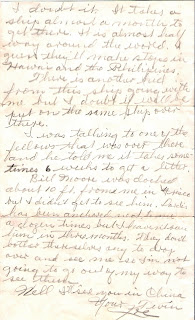 I doubt it. It takes a
ship almost a month to
get there. It is almost half
way around the world. I
guess they'll make stops in
Hawaii and the Philippines.
There is another fellow
from this ship going with
me but I doubt if we'll be
put on the same ship over
there.
I was talking to one of the
fellows that was over there
and he told me it takes some
times 6 weeks to get a letter.
Bill Moore was docked
about 10 ft. from me in
but I didn't get to see him.
has been anchored
a dozen times but I haven't seen
him in three months. They don't
bother themselves any to drop
over and see me so I'm not
going to go out of my way to
see them.
Well I'll see you in China
Your
Joe